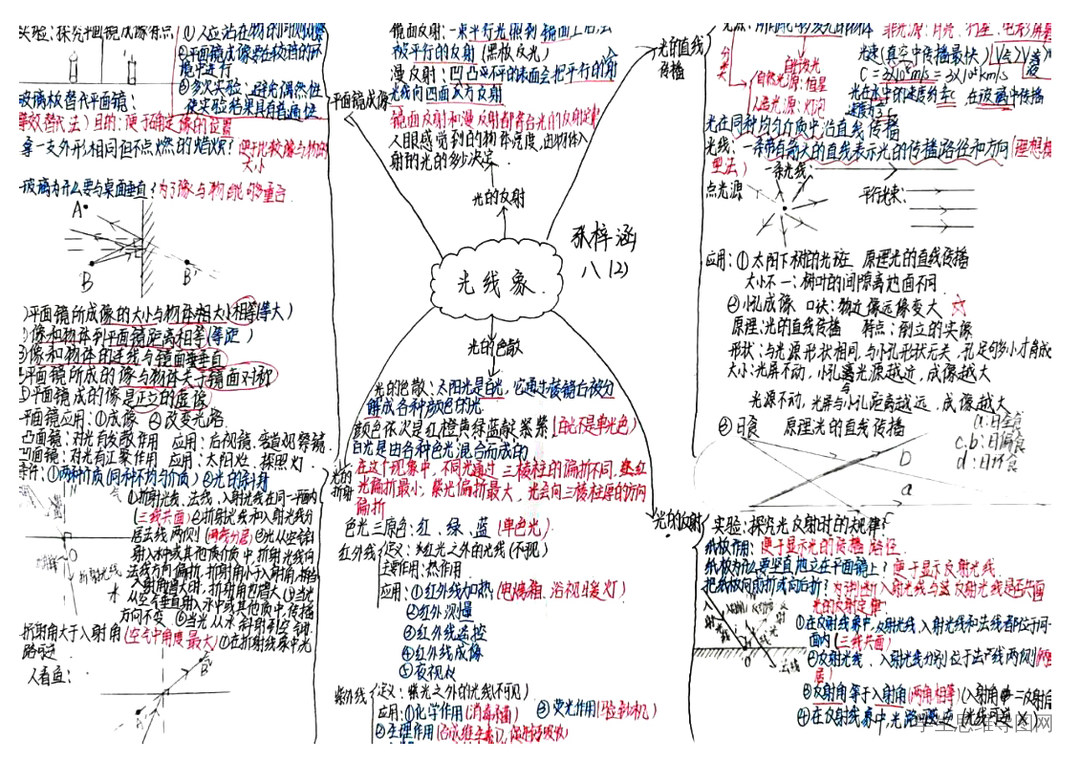 实验：探究平面镜成像特点
①人应站在物的同侧观察
②平面镜成像实验较暗的环
境中进行
③多次实验：避免偶然性
使实验结果具有普遍性
玻璃板替代平面镜：
等效替代法）目的：便于确定像的位置
拿一支外形相同但不点燃的蜡烛？便于比较像与物的
大小
玻璃为什么要与桌面垂直？为了像与物能够重合．
A
B
B'
平面镜所成像的大小与物体相大小相等(等大)
像和物体到平面镜距离相等(等距)
③像和物体的连线与镜面垂直
平面镜所成的像与物体关于镜面对称
平面镜成的像是正立的虚像
平面镜应用：①成像 ②改变光路．
凸面镜：对光有发散作用 应用：后视镜
凹面镜：对光有汇聚作用 应用：太阳灶．探照灯．
条件：①两种介质(同种不均匀介质) ②光的斜射
①折射光线、法线、入射光线在同一平面内
(三线共面)②折射光线和入射光线分
居法线两侧(两旁分居)③光从空气斜
射入水中或其他介质中，折射光线向
法线方向偏折，折射角小于入射角
入射角增大时，折射角也增大④当光
从空气垂直射入水中或其他介质中，传播
方向不变 ⑤当光从水斜射到空气
折射角大于入射角(空气中角度最大)⑥在折射现象中光
路可逆
人看鱼：
镜面反射：一束平行光照到镜面上后
被平行的反射(黑板反光)
漫反射：凹凸不平的表面会把平行的
光线向四面八方反射
镜面反射和漫反射都符合光的反射定律
人眼感觉到的物体亮度，由物体入
射的光的多少决定．
平面镜成像
光的反射
光的直线
传播
张梓涵
八(2)
光线象．
光的色散
光的
折射
光的反射
光的色散：太阳光是白光，它通过棱镜后被分
解成各种颜色的光
颜色依次是红橙黄绿蓝靛紫(白光不是单色光)
白光是由各种色光混合而成的
在这个现象中，不同光通过三棱柱的偏折不同，红
光偏折最小，紫光偏折最大，光会向三棱柱厚的方向
偏折
色光三原色：红、绿、蓝(单色光)．
红外线 定义：红光之外的光线(不可见)
主要作用：热作用．
应用：①红外线加热(电烤箱、浴视暖灯)
②红外测量
③红外线遥控
④红外线成像
⑤夜视仪
紫外线 定义：紫光之外的光线(不可见)
应用：①化学作用(消毒杀菌) ③荧光作用(验钞机)
②生理作用
分类
自然光源：恒星
人造光源：灯泡
光速(真空中传播最快)
C=3×10⁸m/s=3×10⁵km/s
光在水中的速度约 在玻璃中传播
速度
光在同种均匀介质中沿直线传播
光线：一条带有箭头的直线表示光的传播路径和方向(理想模
型法)
点光源
一条光线：
平行光束：
应用：①太阳下树的光斑 原理光的直线传播
大小不一：树叶的间隙离地面不同．
②小孔成像 口诀：物近像远像变大
原理：光的直线传播 特点：倒立的实像
形状：与光源形状相同，与小孔形状无关，孔足够小才成
大小：光屏不动，小孔离光源越近，成像越大
光源不动，光屏与小孔距离越远．成像越大
③日食 原理光的直线传播
a:日全食
c.b:日偏食
d:日环食
b
a
实验：探究光反射时的规律？
纸板作用：便于显示光的传播路径．
纸板为什么要竖直地立在平面镜上？便于显示反射光线．
把纸板向前折或向后折：为判断入射光线与反射光线是否共面
光的反射定律：
①在反射现象中，反射光线，入射光线和法线都位于同一
面内(三线共面)
②反射光线、入射光线分别位于法线两侧
居)
③反射角等于入射角(两角相等)(入射角 反射角
④在反射现象中，光路可逆
法线
O
学生思维导图网